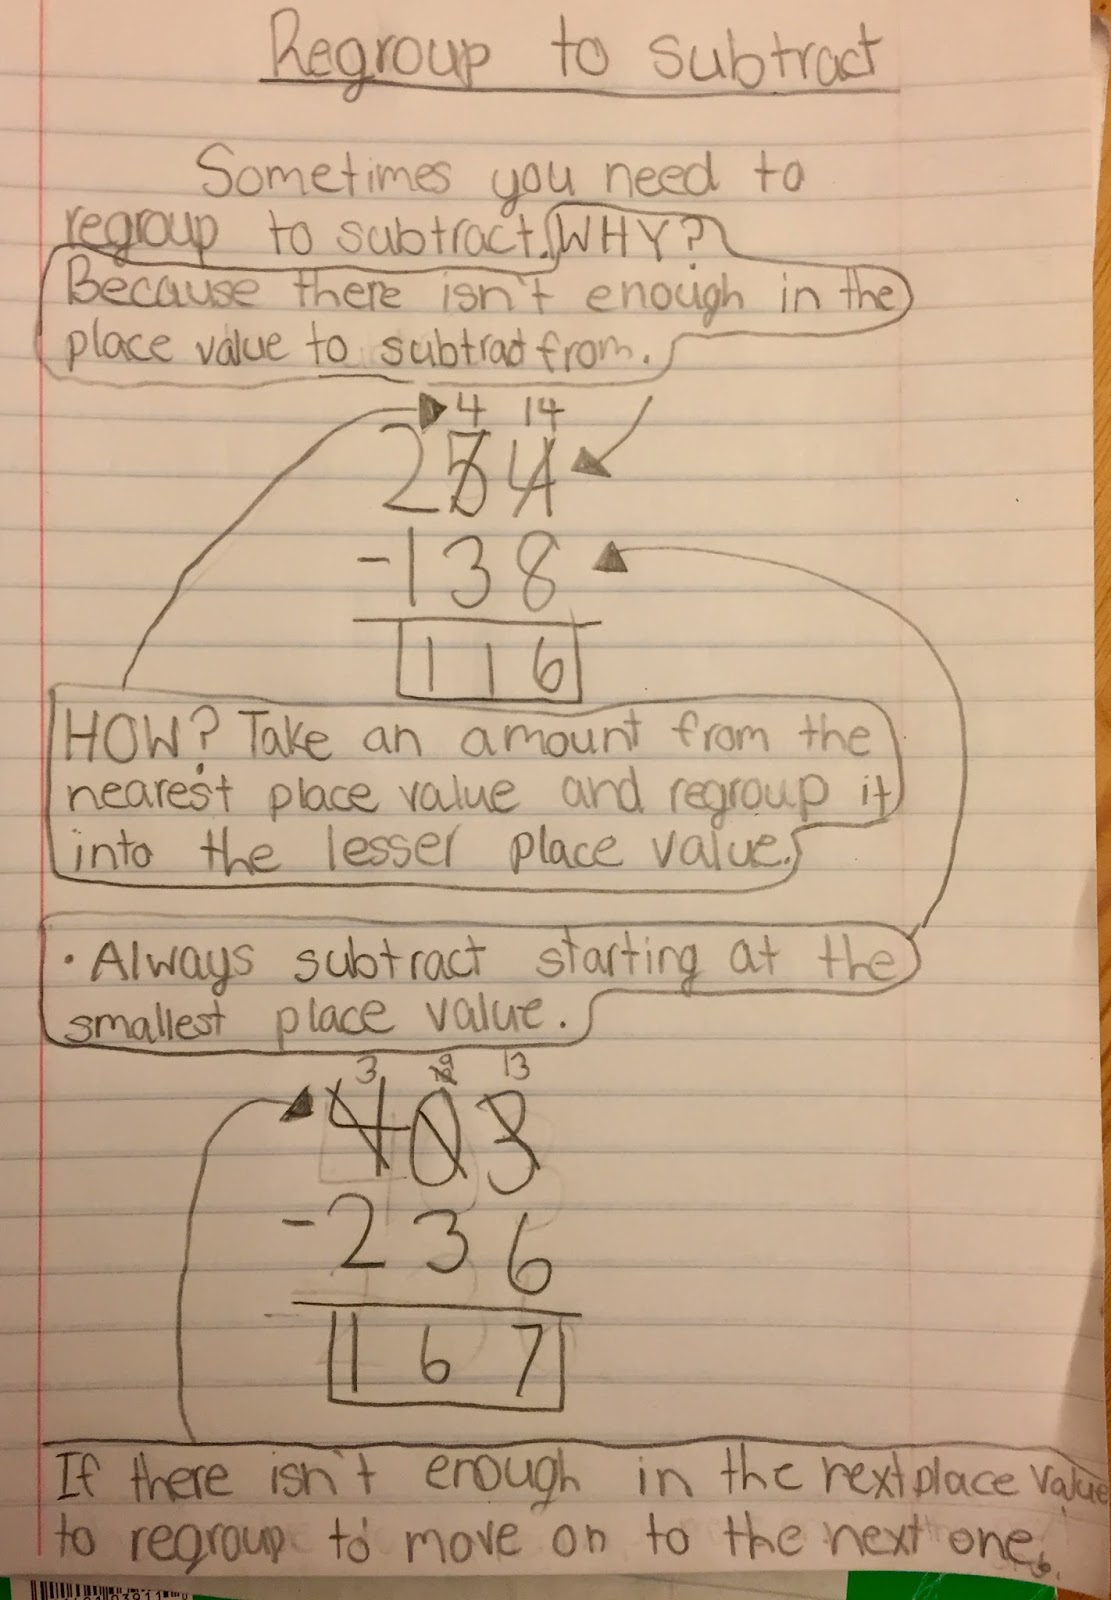 Regroup to subtract
Sometimes you need to
regroup to subtract. WHY?
Because there isn't enough in the
place value to subtract from.
4 14
254
-138
116
HOW? Take an amount from the
nearest place value and regroup it
into the lesser place value.
· Always subtract starting at the
smallest place value.
3 9 13
403
-236
167
If there isn't enough in the next place value
to regroup to move on to the next one.